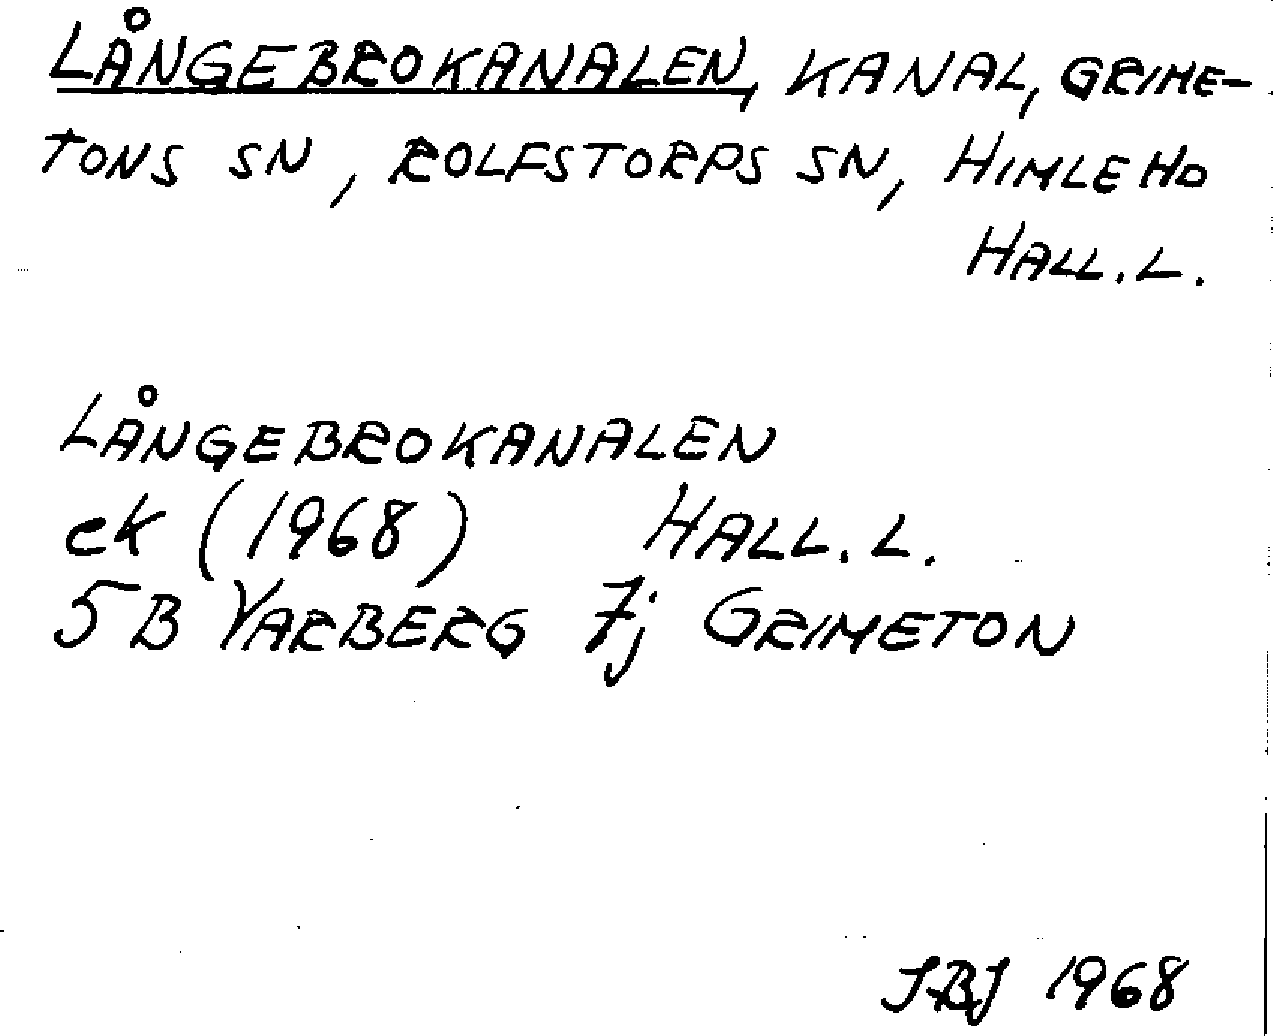 LÅNGEBROKANALEN, KANAL, GRIME-
TONS SN, ROLFSTORPS SN, HIMLE HD
HALL. L.
LÅNGEBROKANALEN
ek (1968) HALL. L.
5B VARBERG 7j GRIMETON
JBJ 1968